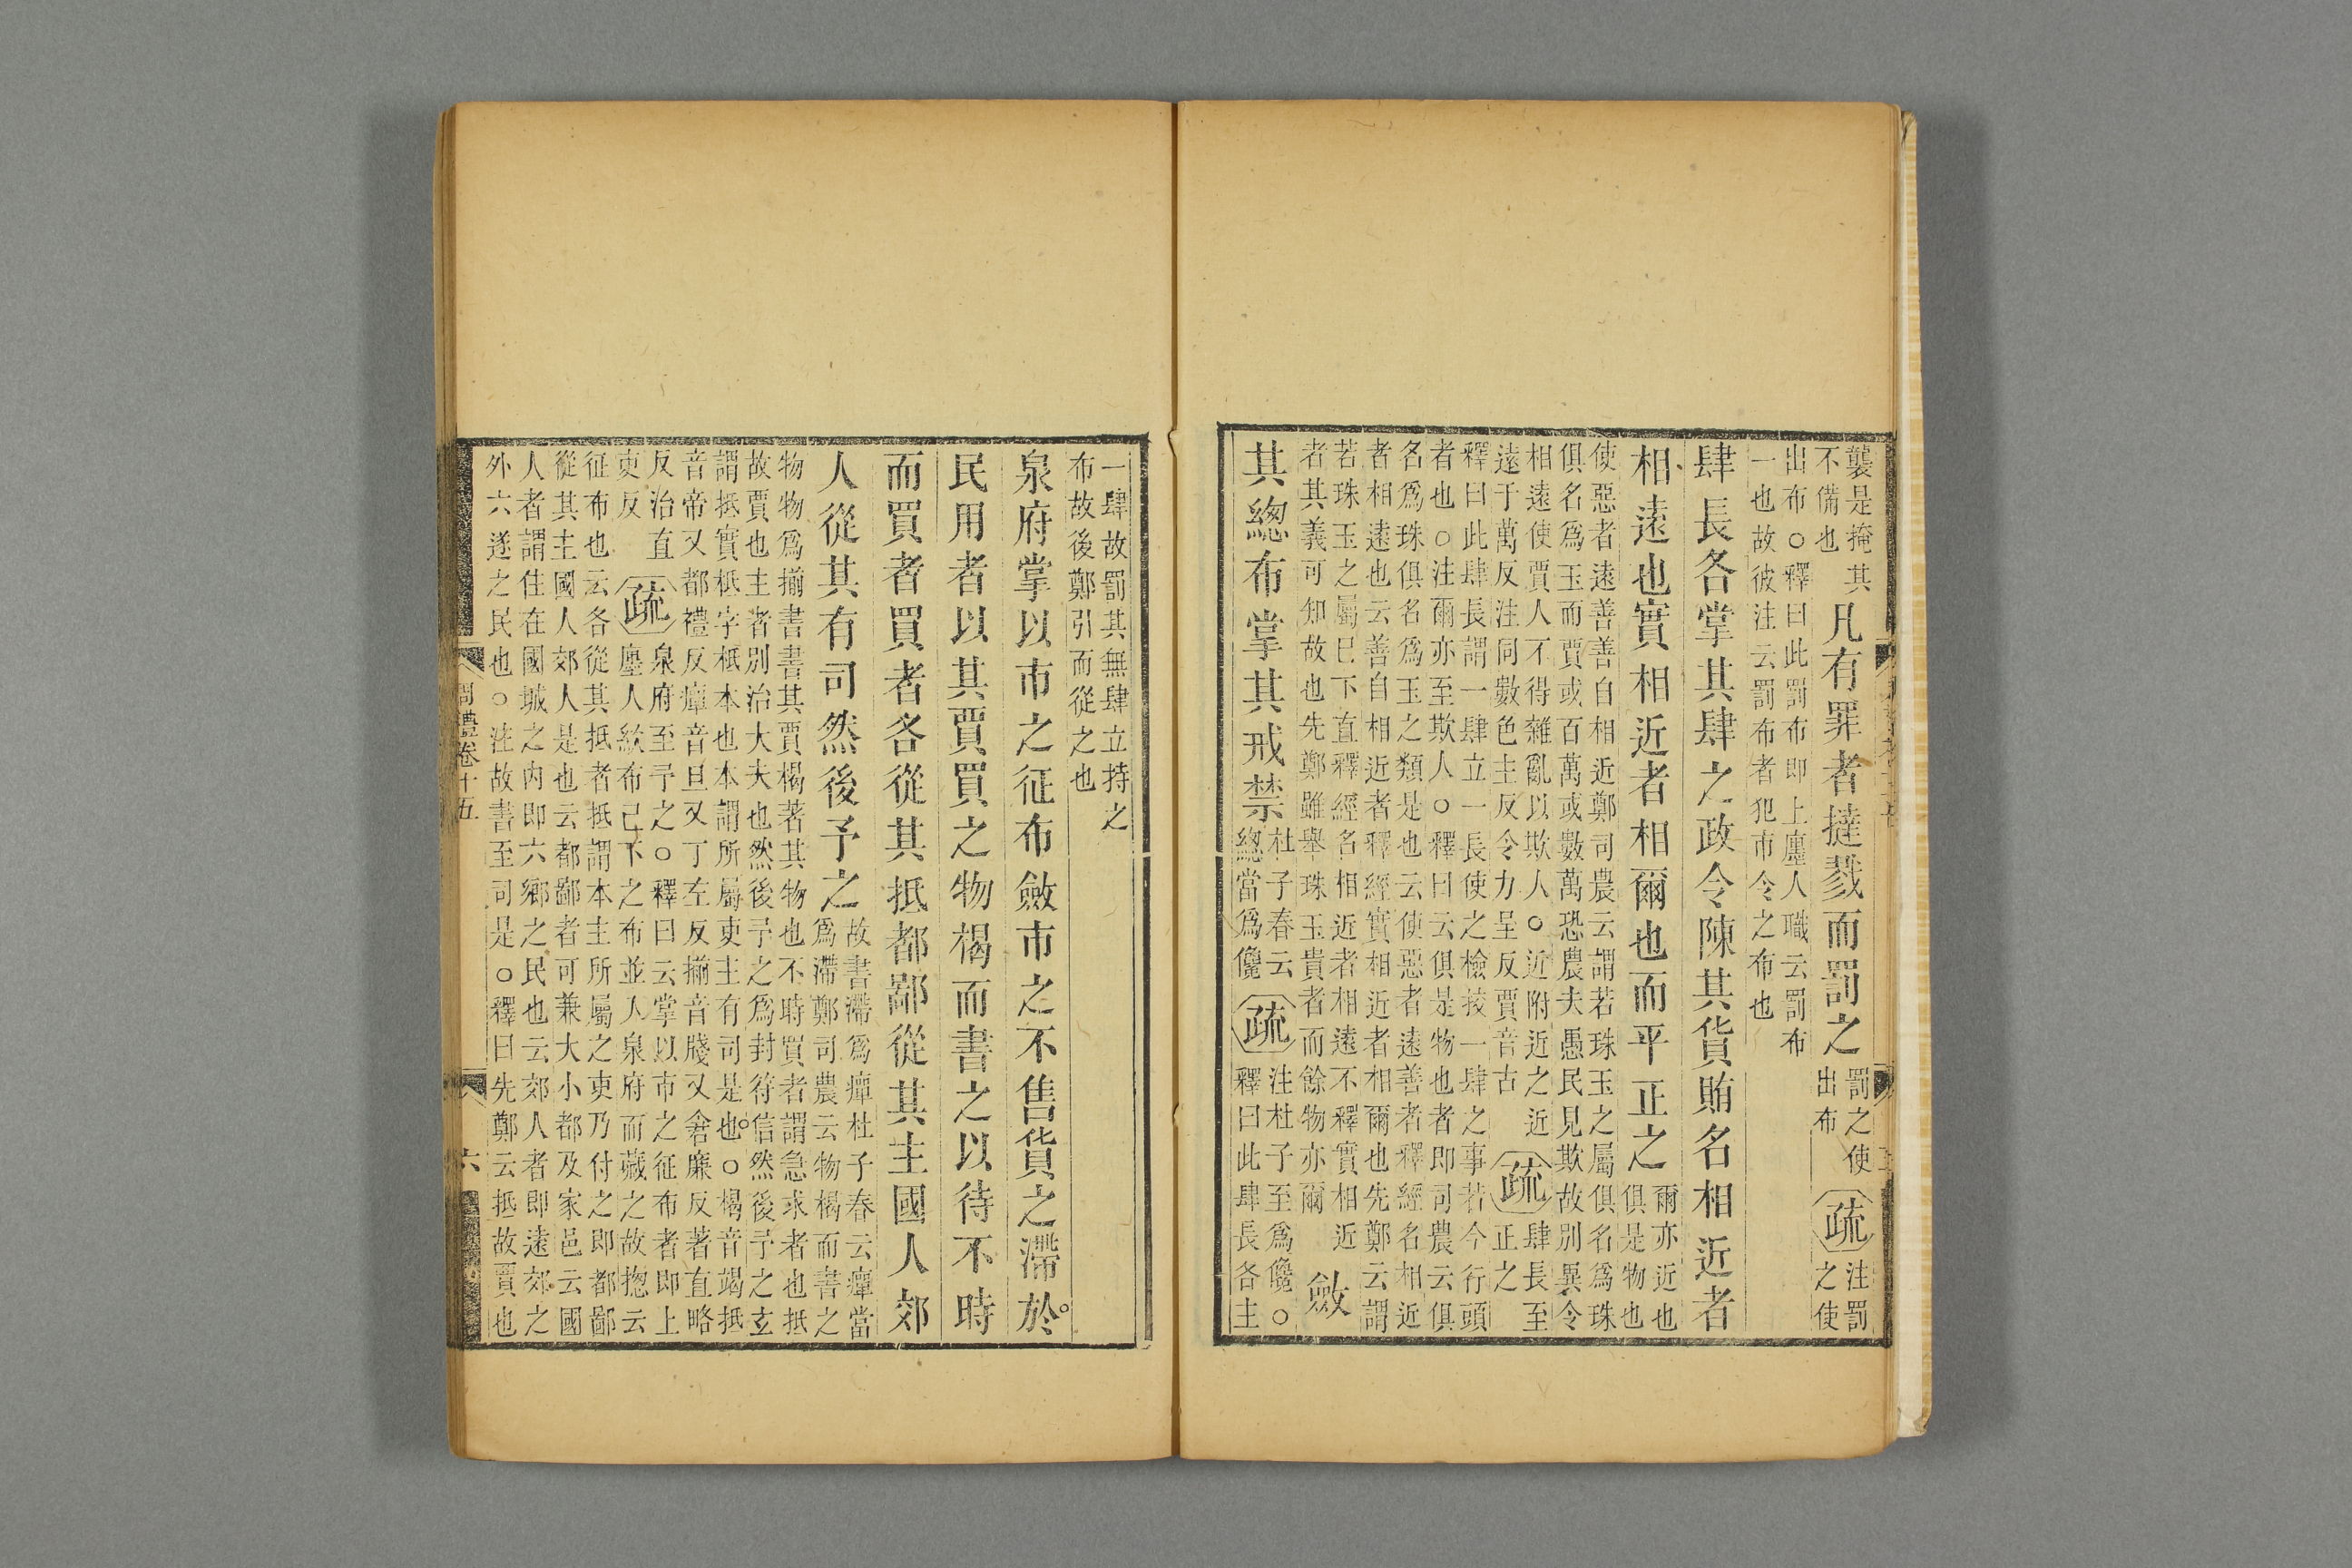 襲是掩其
不備也
凡有罪者撻戮而罰之
罰之使
出布
疏
注罰
之使
出布○釋曰此罰布即上廛人職云罰布
一也故彼注云罰布者犯市令之布也
肆長各掌其肆之政令陳其貨賄名相近者
相遠也實相近者相爾也而平正之
爾亦近也
俱是物也
使惡者遠善善自相近鄭司農云謂若珠玉之屬俱名爲珠
俱名爲玉而賈或百萬或數萬恐農夫愚民見欺故別異令
相遠使賈人不得雜亂以欺人○近附近之近
遠于萬反注同數色主反令力呈反賈音古
疏
肆長至
正之
釋曰此肆長謂一肆立一長使之檢挍一肆之事若今行頭
者也○注爾亦至欺人○釋曰云俱是物也者即司農云俱
名爲珠俱名爲玉之類是也云使惡者遠善者釋經名相近
者相遠也云善自相近者釋經實相近者相爾也先鄭云謂
若珠玉之屬巳下直釋經名相近者相遠不釋實相近
者其義可知故也先鄭雖舉珠玉貴者而餘物亦爾
斂
其總布掌其戒禁
杜子春云
總當爲儳
疏
注杜子至爲儳○
釋曰此肆長各主
一肆故罰其無肆立持之
布故後鄭引而從之也
泉府掌以市之征布斂市之不售貨之滯於
民用者以其賈買之物楬而書之以待不時
而買者買者各從其抵都鄙從其主國人郊
人從其有司然後予之
故書滯爲癉杜子春云癉當
爲滯鄭司農云物楬而書之
物物爲揃書書其賈楬著其物也不時買者謂急求者也抵
故賈也主者別治大夫也然後予之爲封符信然後予之玄
謂抵實柢字柢本也本謂所屬吏主有司是也○楬音竭抵
音帝又都禮反癉音旦又丁左反揃音牋又倉廉反著直略
反治直
吏反
疏
泉府至予之○釋曰云掌以市之征布者即上
廛人絘布已下之布並入泉府而藏之故揔云
征布也云各從其抵者抵謂本主所屬之吏乃付之即都鄙
從其主國人郊人是也云都鄙者可兼大小都及家邑云國
人者謂住在國城之内即六鄉之民也云郊人者即遠郊之
外六遂之民也○注故書至司是○釋曰先鄭云抵故賈也
周禮卷十五
六